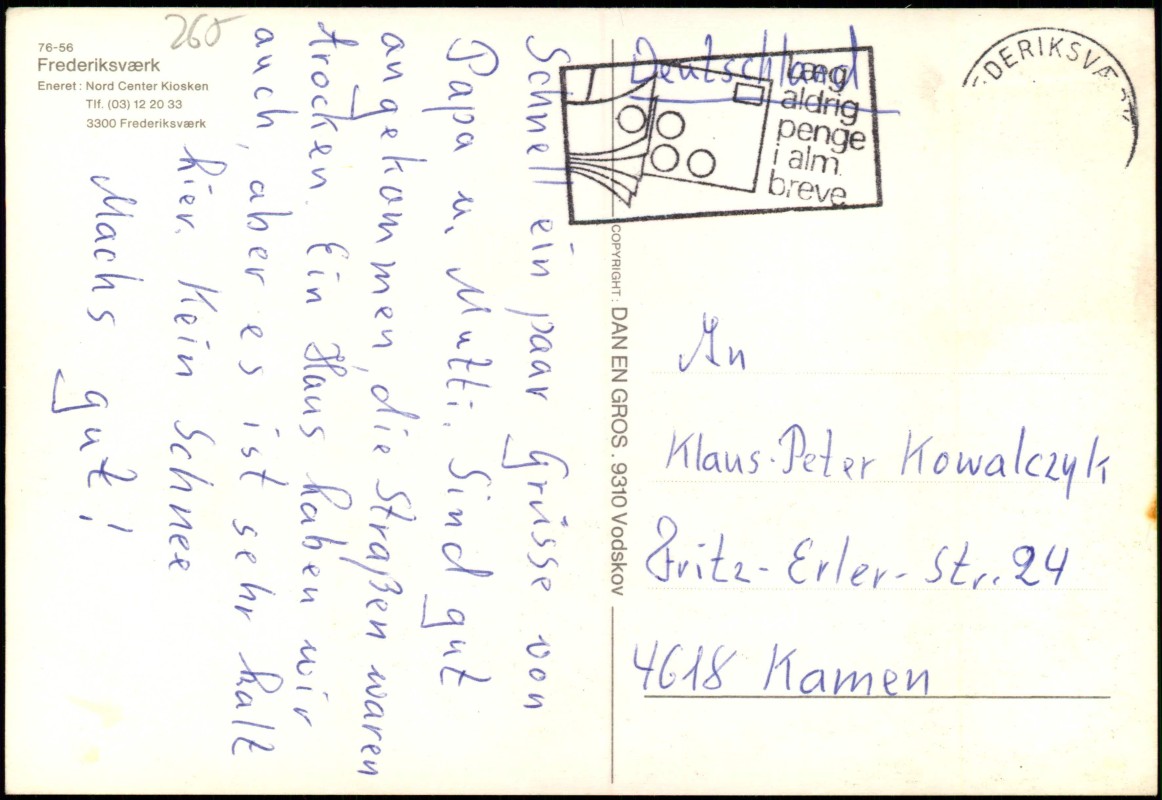 260
76-56
Frederiksværk
Eneret: Nord Center Kiosken
Tlf. (03) 12 20 33
3300 Frederiksværk
Schnell ein paar Grüsse von
Papa u. Mutti. Sind gut
angekommen, die Straßen waren
trocken. Ein Haus haben wir
auch, aber es ist sehr kalt
hier. Kein Schnee
Machs gut!
COPYRIGHT: DAN EN GROS . 9310 Vodskov
Deutschland
læg
aldrig
penge
i alm.
breve
DERIKSVÆ
An
Klaus-Peter Kowalczyk
Fritz-Erler-Str. 24
4618 Kamen